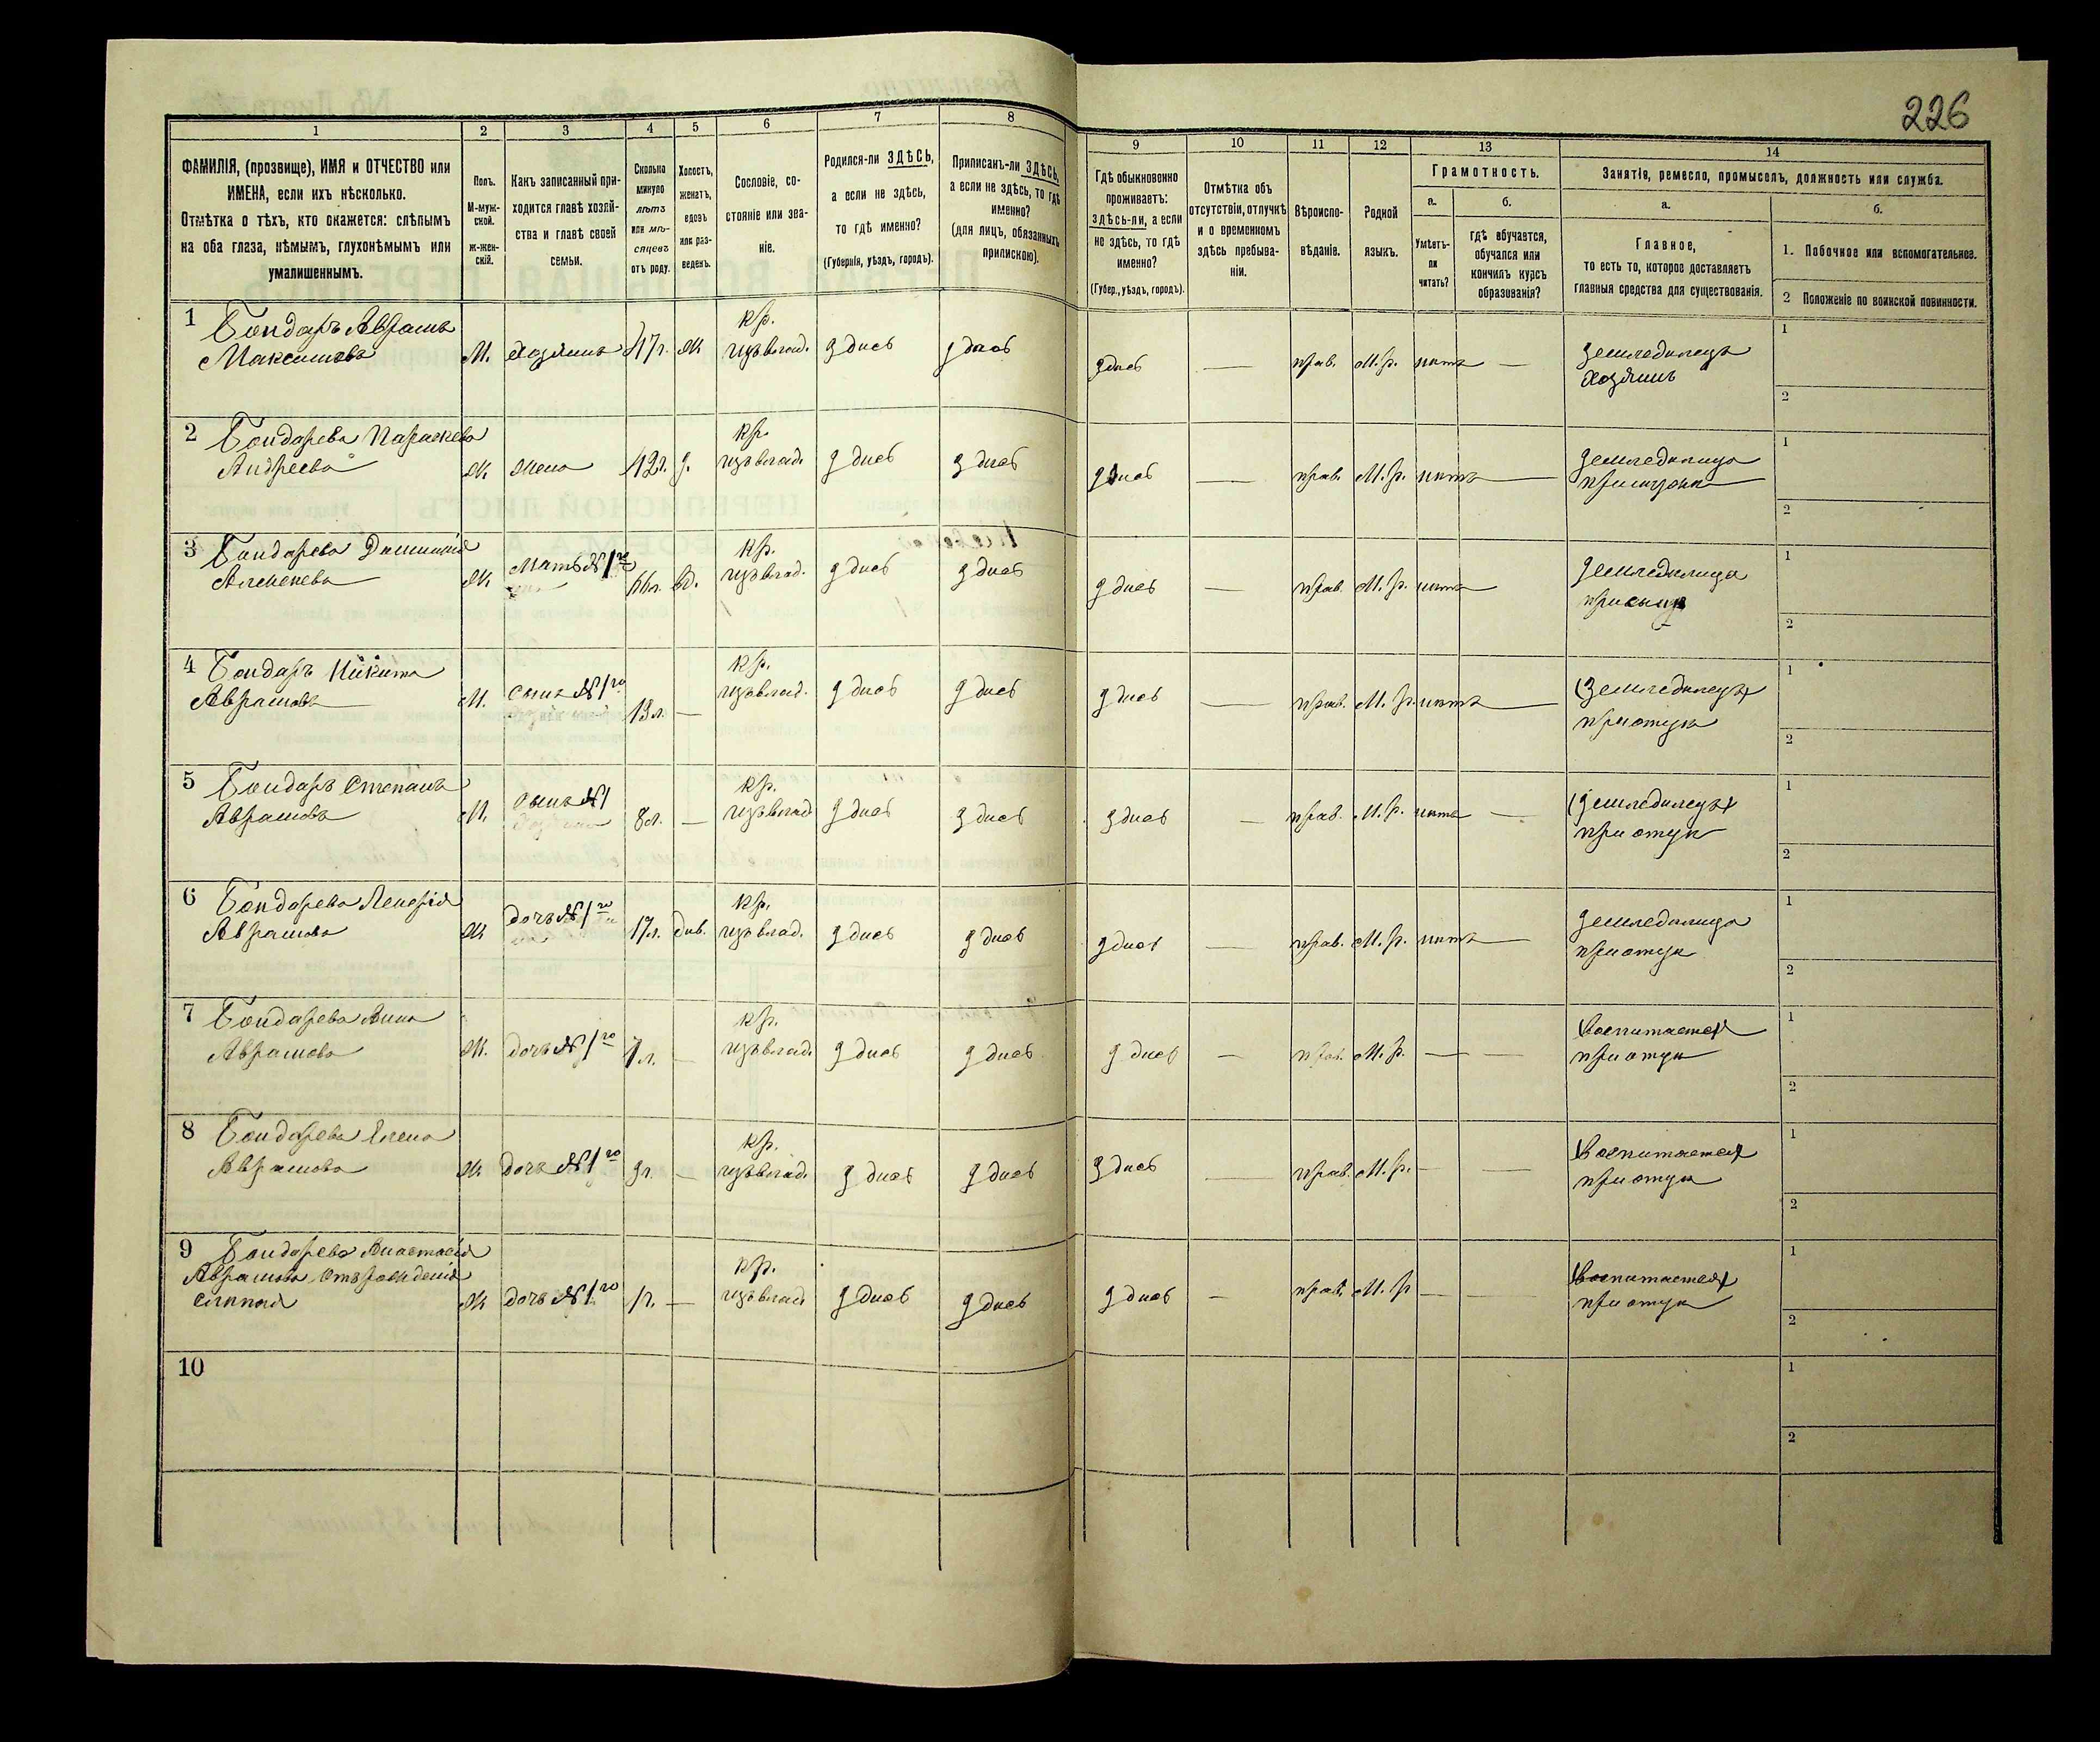 226
1
2
3
4
5
6
7
8
9
10
11
12
13
14
ФАМИЛІЯ, (прозвище), ИМЯ и ОТЧЕСТВО или
ИМЕНА, если ихъ нѣсколько.
Отмѣтка о тѣхъ, кто окажется: слѣпымъ
на оба глаза, нѣмымъ, глухонѣмымъ или
умалишеннымъ.
Полъ.
М-муж-
ской.
ж-жен-
скій.
Какъ записанный при-
ходится главѣ хозяй-
ства и главѣ своей
семьи.
Сколько
минуло
лѣтъ
или мѣ-
сяцевъ
отъ роду.
Холостъ,
женатъ,
вдовъ
или раз-
веденъ.
Сословіе, со-
стояніе или зва-
ніе.
Родился-ли ЗДѢСЬ,
а если не здѣсь,
то гдѣ именно?
(Губернія, уѣздъ, городъ).
Приписанъ-ли ЗДѢСЬ,
а если не здѣсь, то гдѣ
именно?
(для лицъ, обязанныхъ
припискою).
Гдѣ обыкновенно
проживаетъ:
здѣсь-ли, а если
не здѣсь, то гдѣ
именно?
(Губер., уѣздъ, городъ).
Отмѣтка объ
отсутствіи, отлучкѣ
и о временномъ
здѣсь пребыва-
ніи.
Вѣроиспо-
вѣданіе.
Родной
языкъ.
Грамотность.
а.
б.
Умѣетъ-
ли
читать?
гдѣ обучается,
обучался или
кончилъ курсъ
образованія?
Занятія, ремесло, промыселъ, должность или служба.
а.
б.
Главное,
то есть то, которое доставляетъ
главныя средства для существованія.
1. Побочное или вспомогательное.
2 Положеніе по воинской повинности.
1 Бондарь Аврамъ кр. 1
Максимовъ М. Хозяинъ 47 г. Ж изъ влад. здѣсь здѣсь здѣсь — прав. М. р. нѣтъ — земледѣлецъ
хозяинъ
2
2 Бондарева Параскева кр. 1
Андреева Ж жена 42 г. з. изъ влад. здѣсь здѣсь здѣсь — прав. М. р. нѣтъ — земледѣлица
при мужѣ
2
3 Бондарева кр. 1
Ж Мать №1го 66 л. вд. изъ влад. здѣсь здѣсь здѣсь — прав. М. р. нѣтъ — земледѣлица
при сынѣ
2
4 Бондарь Никита кр. 1
Аврамовъ М. Сынъ №1го 13 л. — изъ влад. здѣсь здѣсь здѣсь — прав. М. р. нѣтъ — (земледѣлецъ)
при отцѣ
2
5 Бондарь Степанъ кр. 1
Аврамовъ М. Сынъ №1 8 л. — изъ влад здѣсь здѣсь здѣсь — прав. М. р. нѣтъ — (земледѣлецъ)
при отцѣ
2
6 Бондарева кр. 1
Аврамова Ж дочь №1го 17 л. дѣв. изъ влад. здѣсь здѣсь здѣсь — прав. М. р. нѣтъ — земледѣлица
при отцѣ
2
7 Бондарева Анна кр. 1
Аврамова Ж. дочь №1го — изъ влад. здѣсь здѣсь здѣсь — прав. М. р. — — воспитается
при отцѣ
2
8 Бондарева Елена кр. 1
Аврамова Ж дочь №1го — изъ влад. здѣсь здѣсь здѣсь — прав. М. р. — — воспитается
при отцѣ
2
9 Бондарева Анастасія кр. 1
Аврамова отъ рожденія
слѣпая Ж дочь №1го 1 г. — изъ влад здѣсь здѣсь здѣсь — прав. М. р — — воспитается
при отцѣ
2
10
1
2